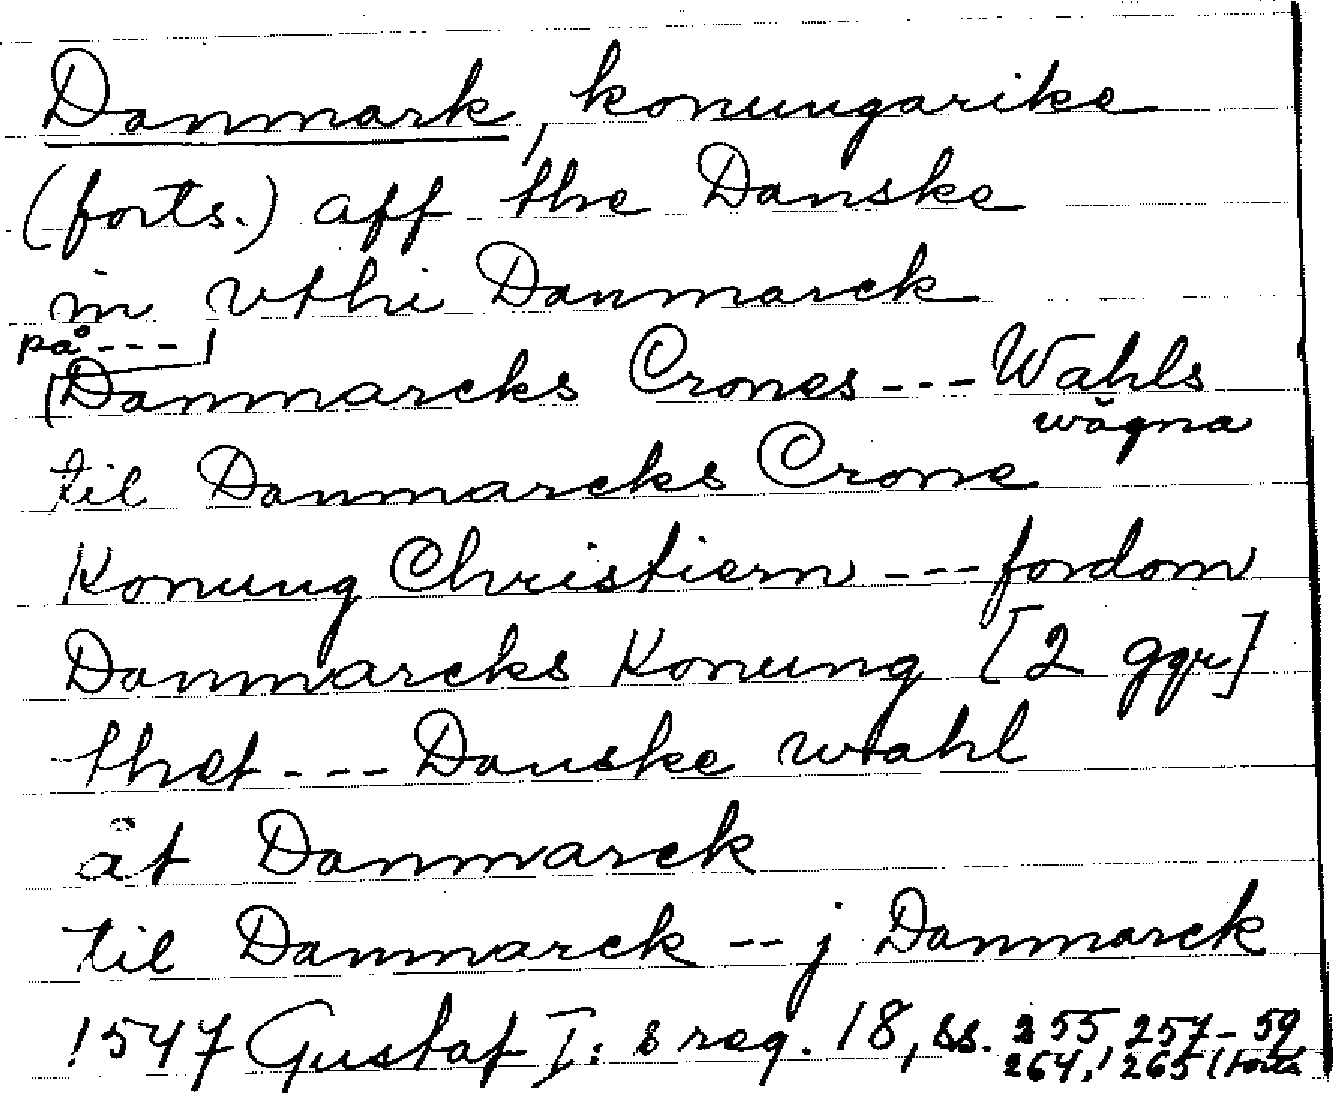 Danmark, konungarike
(forts.) aff the Danske
in vthi Danmarck
på --- |
Danmarcks Crones --- Wahls
wägna
til Danmarcks Crone
Konung Christiern --- fordom
Danmarcks Konung [2 ggr]
thet --- Danske wahl
åt Danmarck
til Danmarck -- j Danmarck
1547 Gustaf I:s reg. 18, ss. 255, 257-59,
264, 265 (forts